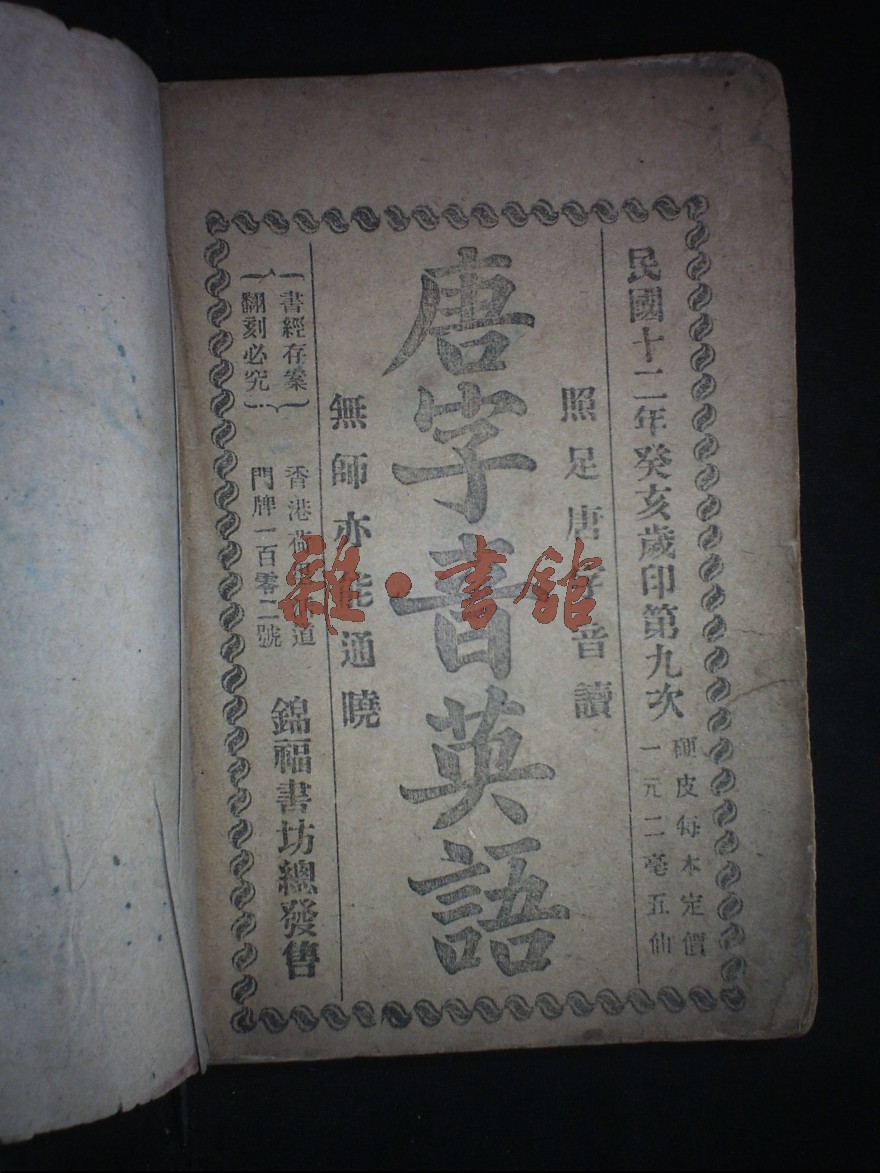 民國十二年癸亥歲印第九次
硬皮每本定價
一元二毫五仙
照足唐字音讀
唐字音英語
無師亦能通曉
書經存案
翻刻必究
香港荷李活道
門牌一百零二號
錦福書坊總發售
雜·書館